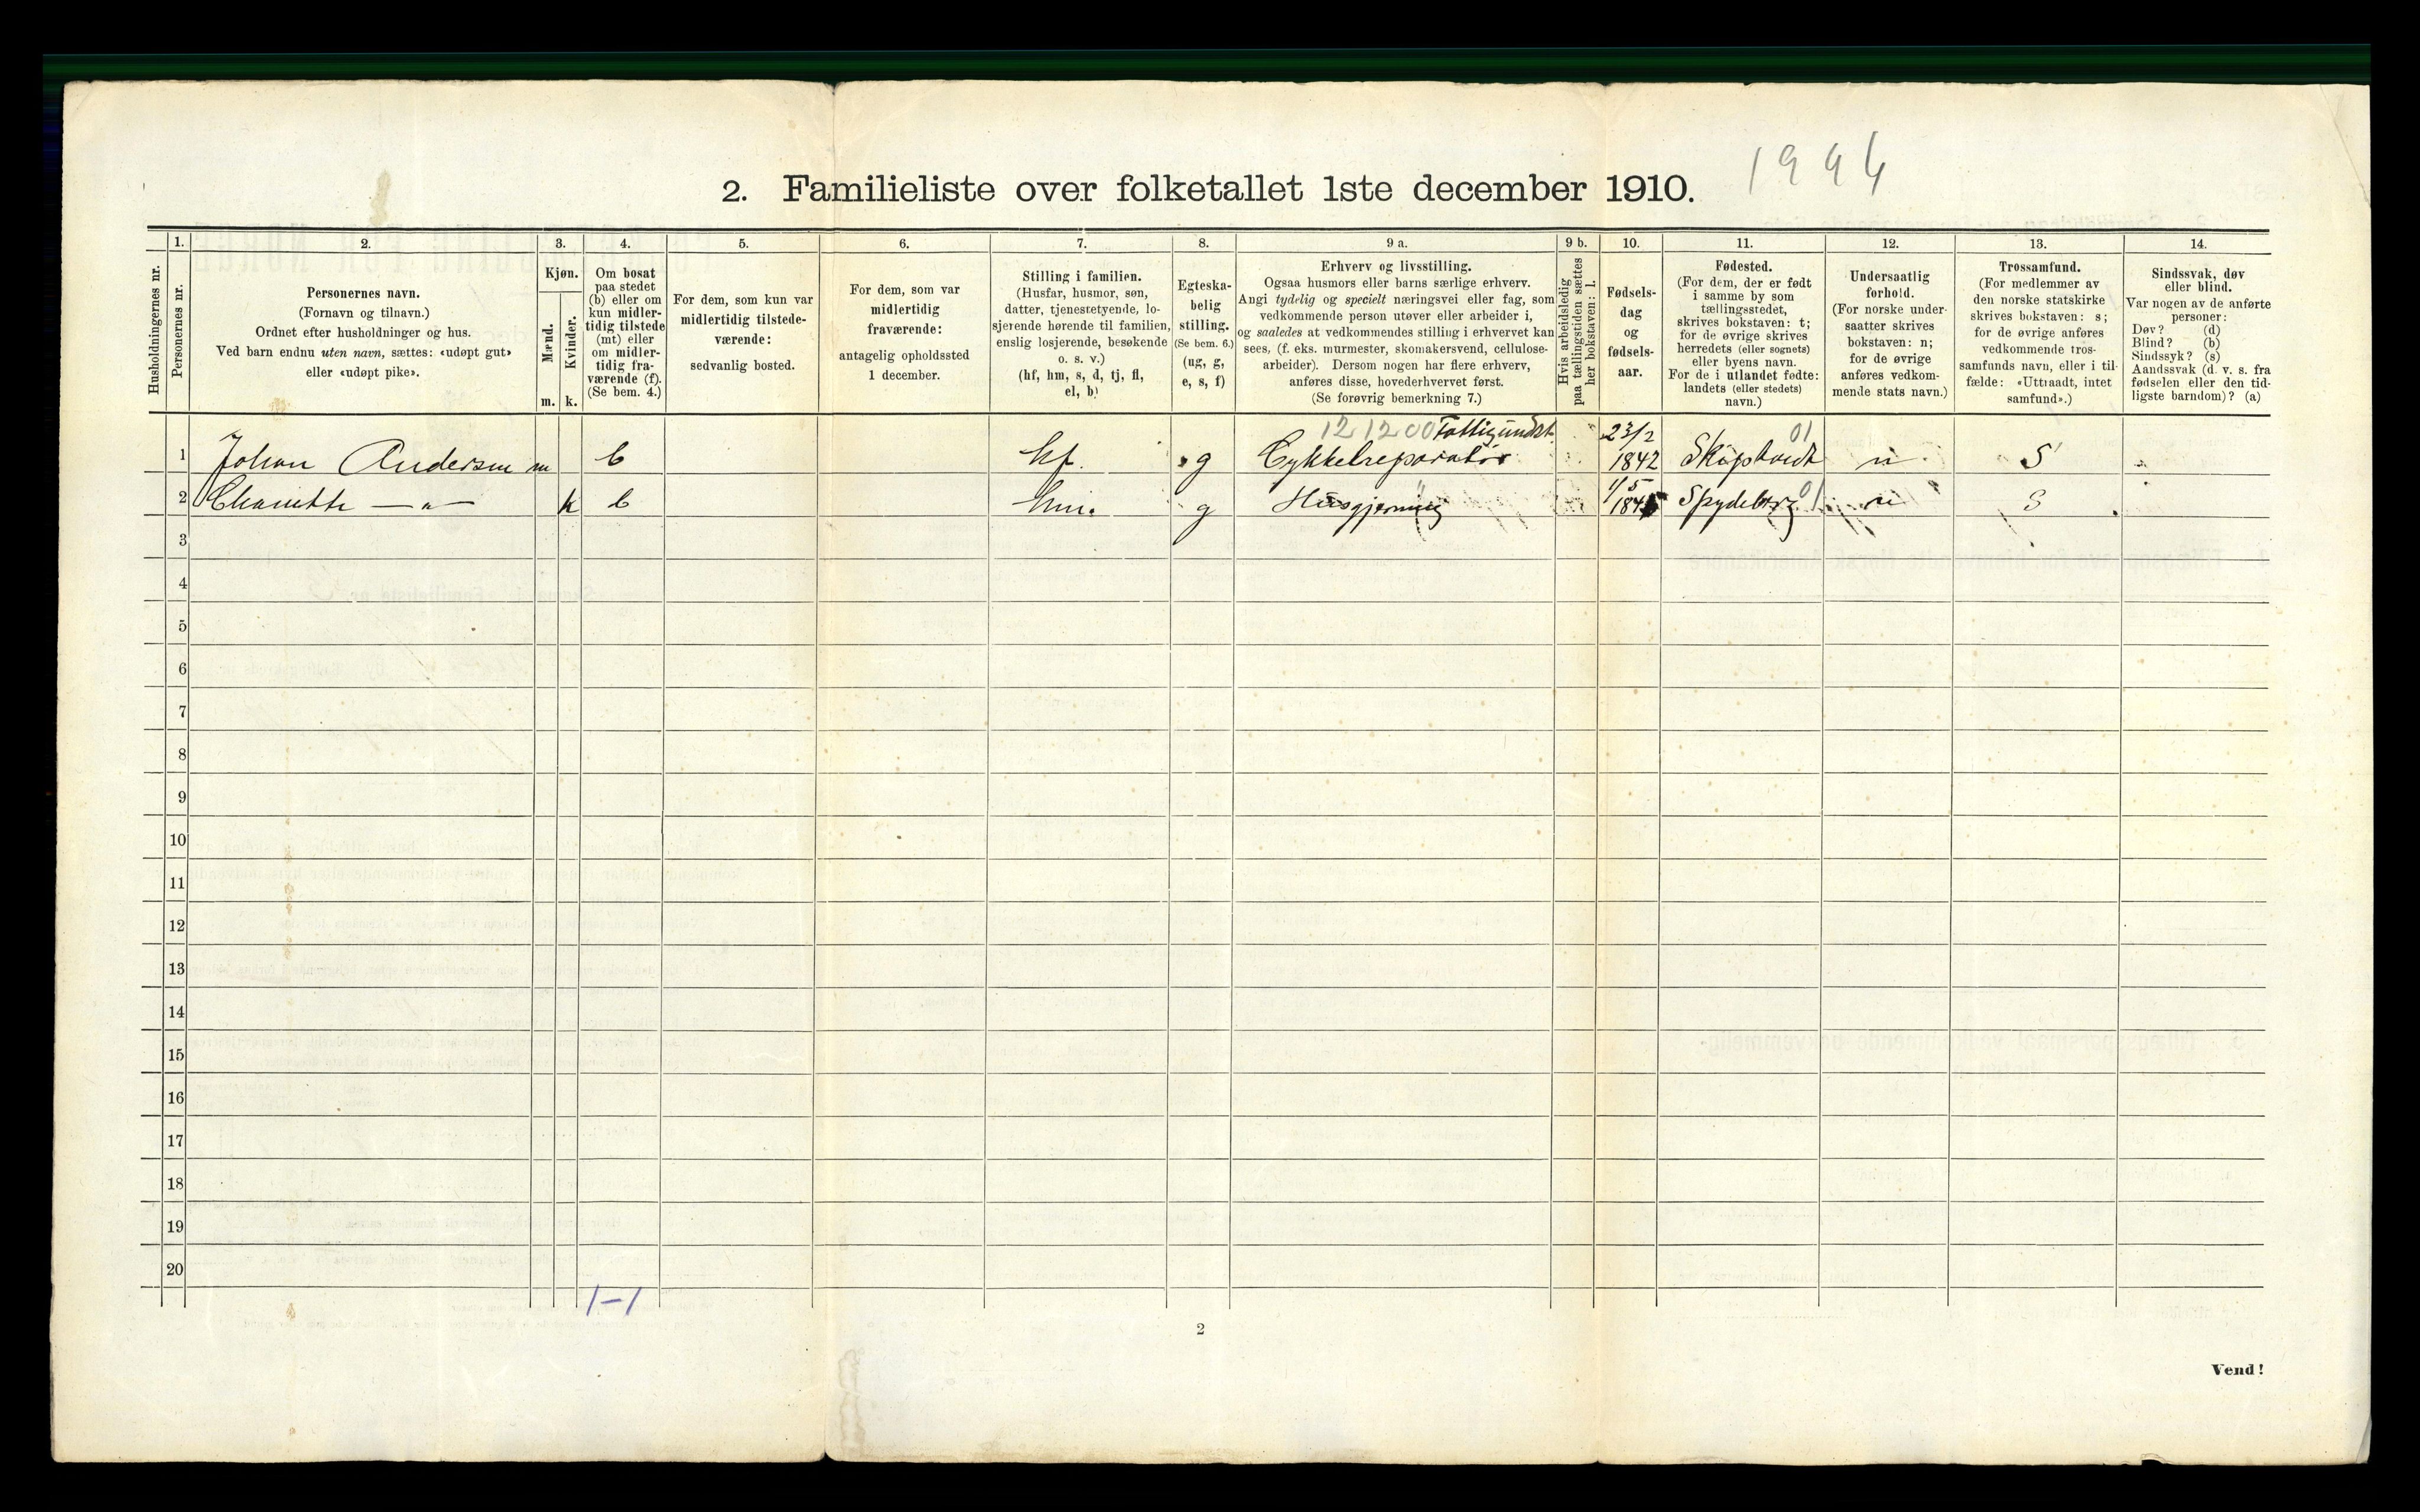 1994
2. Familieliste over folketallet 1ste december 1910.
Husholdningernes nr.
1. Personernes nr.
2. Personernes navn.
(Fornavn og tilnavn.)
Ordnet efter husholdninger og hus.
Ved barn endnu uten navn, sættes: «udøpt gut»
eller «udøpt pike».
3. Kjøn.
Mænd. m.
Kvinder. k.
4. Om bosat
paa stedet
(b) eller om
kun midler-
tidig tilstede
(mt) eller
om midler-
tidig fra-
værende (f).
(Se bem. 4.)
5. For dem, som kun var
midlertidig tilstede-
værende:
sedvanlig bosted.
6. For dem, som var
midlertidig
fraværende:
antagelig opholdssted
1 december.
7. Stilling i familien.
(Husfar, husmor, søn,
datter, tjenestetyende, lo-
sjerende hørende til familien,
enslig losjerende, besøkende
o. s. v.)
(hf, hm, s, d, tj, fl,
el, b)
8. Egteska-
belig
stilling.
(Se bem. 6.)
(ug, g,
e, s, f)
9 a. Erhverv og livsstilling.
Ogsaa husmors eller barns særlige erhverv.
Angi tydelig og specielt næringsvei eller fag, som
vedkommende person utøver eller arbeider i,
og saaledes at vedkommendes stilling i erhvervet kan
sees, (f. eks. murmester, skomakersvend, cellulose-
arbeider). Dersom nogen har flere erhverv,
anføres disse, hovederhvervet først.
(Se forøvrig bemerkning 7.)
9 b. Hvis arbeidsledig
paa tællingstiden sættes
her bokstaven: l.
10. Fødsels-
dag
og
fødsels-
aar.
11. Fødested.
(For dem, der er født
i samme by som
tællingsstedet,
skrives bokstaven: t;
for de øvrige skrives
herredets (eller sognets)
eller byens navn.
For de i utlandet fødte:
landets (eller stedets)
navn.)
12. Undersaatlig
forhold.
(For norske under-
saatter skrives
bokstaven: n;
for de øvrige
anføres vedkom-
mende stats navn.)
13. Trossamfund.
(For medlemmer av
den norske statskirke
skrives bokstaven: s;
for de øvrige anføres
vedkommende tros-
samfunds navn, eller i til-
fælde: «Uttraadt, intet
samfund».)
14. Sindssvak, døv
eller blind.
Var nogen av de anførte
personer:
Døv? (d)
Blind? (b)
Sindssyk? (s)
Aandssvak (d. v. s. fra
fødselen eller den tid-
ligste barndom)? (a)
121200 Fattigundst. 23/2 01
1 Johan Andersen m b hf. g Cykkelreparatør 1842 Skiptvedt n S
1/5 01
2 k b hm. g Husgjerning 1845 Spydeberg n S
3
4
5
6
7
8
9
10
11
12
13
14
15
16
17
18
19
20
1-1
2
Vend!